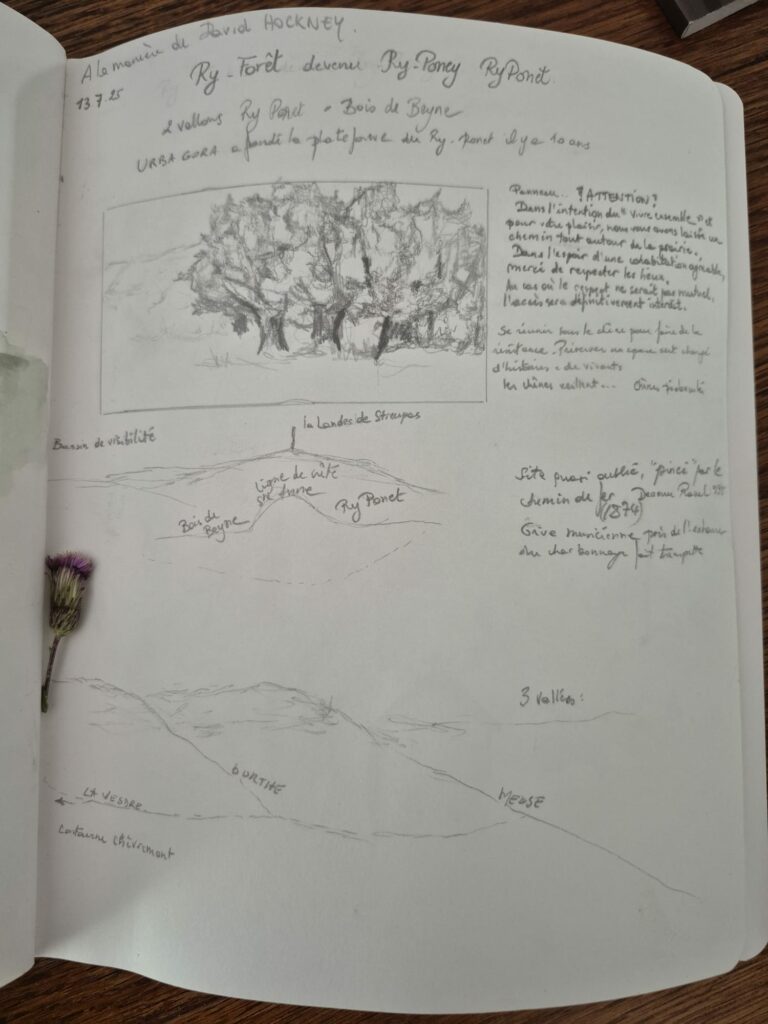 A la manière de David HOCKNEY.
13.7.25
Ry-Forêt devenu Ry-Poney RyPonet.
2 vallons Ry Ponet - Bois de Beyne
URBAGORA a fondé la plateforme du Ry-Ponet il y a 10 ans
Panneau... ?ATTENTION?
Dans l'intention du "vivre ensemble" et
pour votre plaisir, nous vous avons laissé un
chemin tout autour de la prairie.
Dans l'espoir d'une cohabitation agréable,
merci de respecter les lieux.
Au cas où le respect ne serait pas mutuel,
l'accès sera définitivement interdit.
Se réunir sous le chêne pour faire de la
résistance. Préserver un espace vert chargé
d'histoires & de vivants
les chênes veillent... Chênes
Bassin de visibilité
la Landes de Streupas
Ligne de crête
Bois de
Beyne
Ry Ponet
Site quasi oublié, "pincé" par le
chemin de fer
(1874)
près de
du charbonnage
3 vallées:
OURTHE
LA VESDRE
MEUSE
Chèvremont